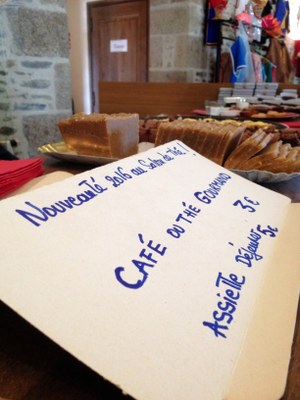 Nouveauté 2016 au Salon de Thé !
CAFÉ OU THÉ GOURMAND 3€
ASSIETTE Déjeuner 5€